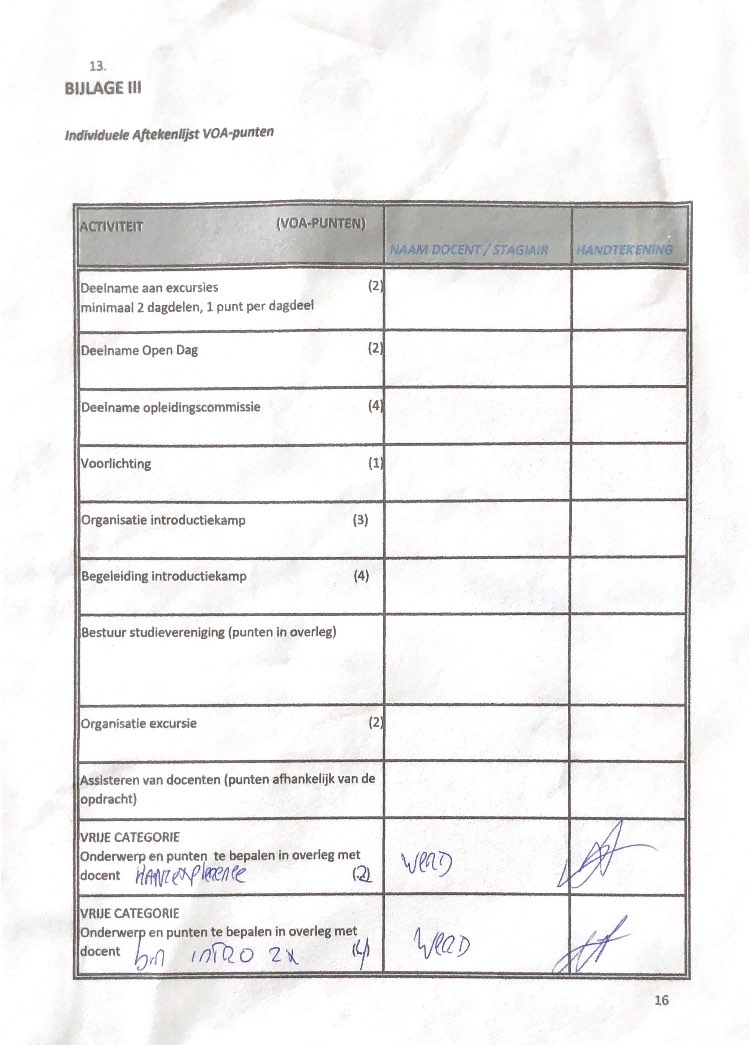 13.
BIJLAGE III
Individuele Aftekenlijst VOA-punten
ACTIVITEIT (VOA-PUNTEN) NAAM DOCENT / STAGIAIR HANDTEKENING
Deelname aan excursies (2)
minimaal 2 dagdelen, 1 punt per dagdeel
Deelname Open Dag (2)
Deelname opleidingscommissie (4)
Voorlichting (1)
Organisatie introductiekamp (3)
Begeleiding introductiekamp (4)
Bestuur studievereniging (punten in overleg)
Organisatie excursie (2)
Assisteren van docenten (punten afhankelijk van de
opdracht)
VRIJE CATEGORIE
Onderwerp en punten te bepalen in overleg met
docent (2)
VRIJE CATEGORIE
Onderwerp en punten te bepalen in overleg met
docent INTRO 2X
16